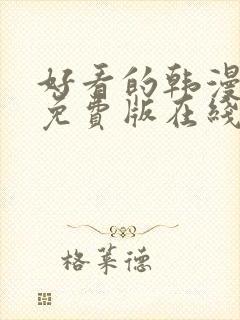 好看的韩漫
免費版在綫
格莱德